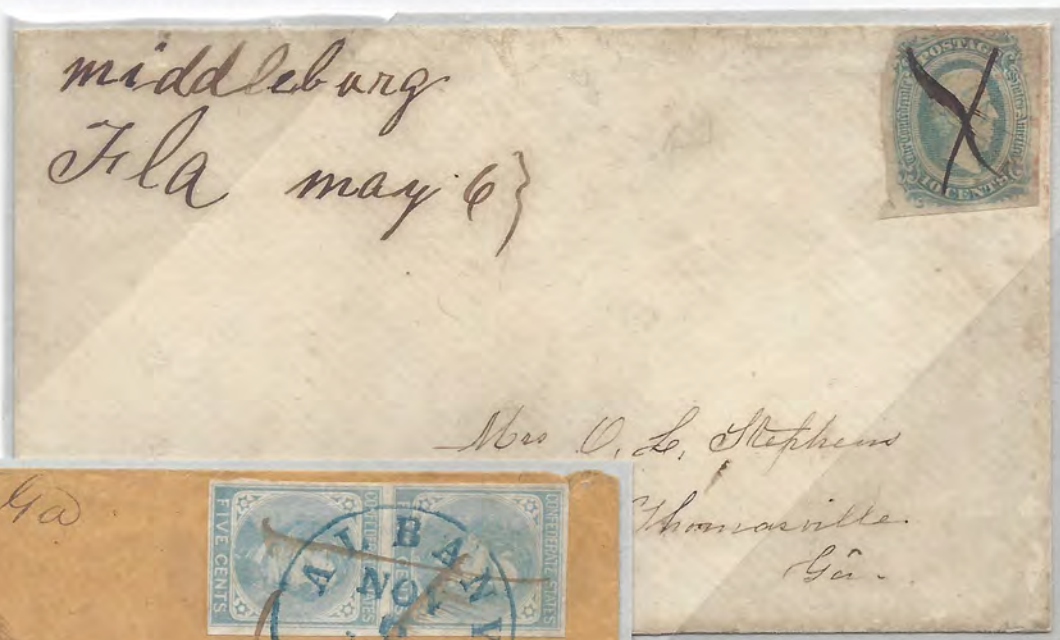 middleburg
Fla may 6}
POSTAGE
The Confederate States America
10 CENTS
Mrs O. L. Stephens
Thomasville
Ga.
Ga
FIVE CENTS
CONFEDERATE STATES
CONFEDERATE STATES
ALBANY
NOV